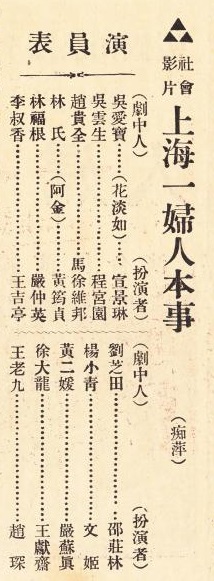 社會影片 上海一婦人本事
（痴萍）
演員表
（劇中人）（扮演者）
吳愛寶……（花淡如）……宣景琳
吳雲生……程宮園
趙貴全……馬徐維邦
林氏……（阿金）……黃筠貞
林福根……嚴仲英
李叔香……王吉亭
（劇中人）（扮演者）
劉芝田……邵莊林
楊小青……文姬
黃二媛……嚴蘇眞
徐大龍……王獻齋
王老九……趙琛